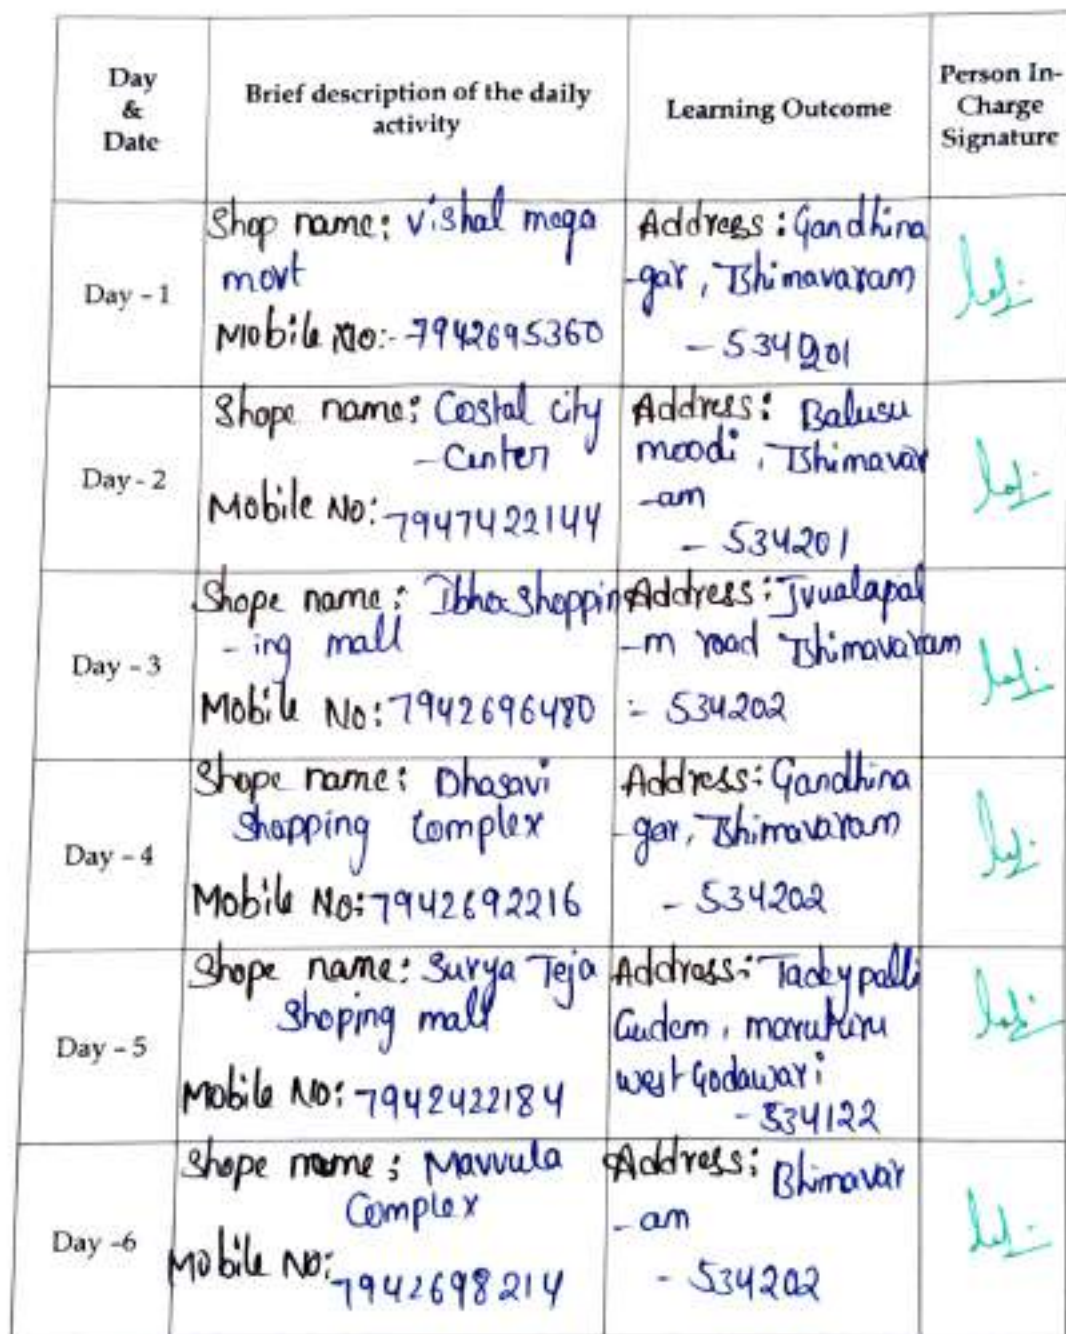 Day
&
Date
Brief description of the daily
activity
Learning Outcome
Person In-
Charge
Signature
Day - 1
Shop name: Vishal mega
mort
Mobile No:- 7942695360
Address: Gandhina
-gar, Bhimavaram
- 534201
Day - 2
Shope name: Costal city
- Center
Mobile No: 7947422144
Address: Balusu
moodi, Bhimavar
-am
- 534201
Day - 3
Shope name: shoppin
- ing mall
Mobile No: 7942696480
Address:
-m road Bhimavaram
:- 534202
Day - 4
Shope name: Dhasavi
Shopping Complex
Mobile No: 7942692216
Address: Gandhina
-gar, Bhimavaram
- 534202
Day - 5
Shope name: Surya Teja
Shoping mall
Mobile No: 7942422184
Address: Tadeypalli
Gudem,
west Godawari
- 534122
Day -6
Shope name: Mavvula
Complex
Mobile No: 7942698214
Address: Bhimavar
-am
- 534202